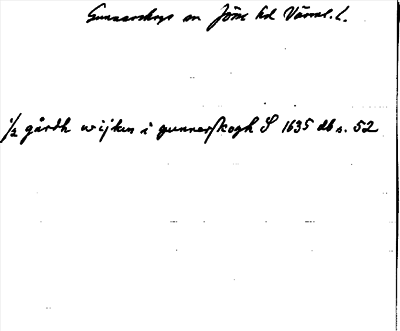 Gunnarskogs sn Jösse hd Värml. l.
1/2 gårdh wijken i gunnerskogh S 1635 db s. 52